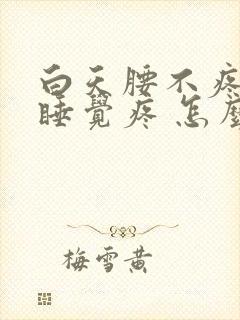 白天腰不疼
睡覺疼 怎麼
梅雪黄